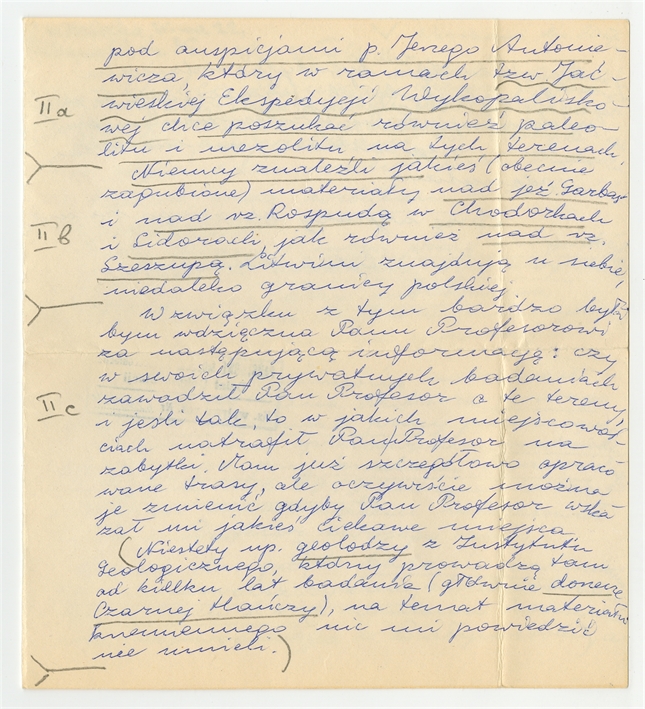 pod auspicjami p. Jerzego Antonie-
wicza, który w ramach tzw. Jać-
wieskiej Ekspedycji Wykopalisko-
wej chce poszukać również paleo-
litu i mezolitu na tych terenach.
Niemcy znaleźli jakieś (obecnie
zagubione) materiały nad jez. Garbaś
i nad rz. Rospudą w Chodorkach
i Sidorach, jak również nad rz.
Szeszupą. Litwini znajdują u siebie,
niedaleko granicy polskiej
II a
II b
W związku z tym bardzo była
bym wdzięczna Panu Profesorowi
za następującą informację: czy
w swoich prywatnych badaniach
zawadził Pan Profesor o te tereny,
i jeśli tak, to w jakich miejscowoś-
ciach natrafił Pan Profesor na
zabytki. Mam już szczegółowo opraco
wane trasy, ale oczywiście można
je zmienić gdyby Pan Profesor wska
zał mi jakieś ciekawe miejsca
II c
(Niestety np. geolodzy z Instytutu
Geologicznego, którzy prowadzą tam
od kilku lat badania (głównie dorzecze
Czarnej Hańczy), na temat materiału
krzemiennego nic mi powiedzieć
nie umieli.)